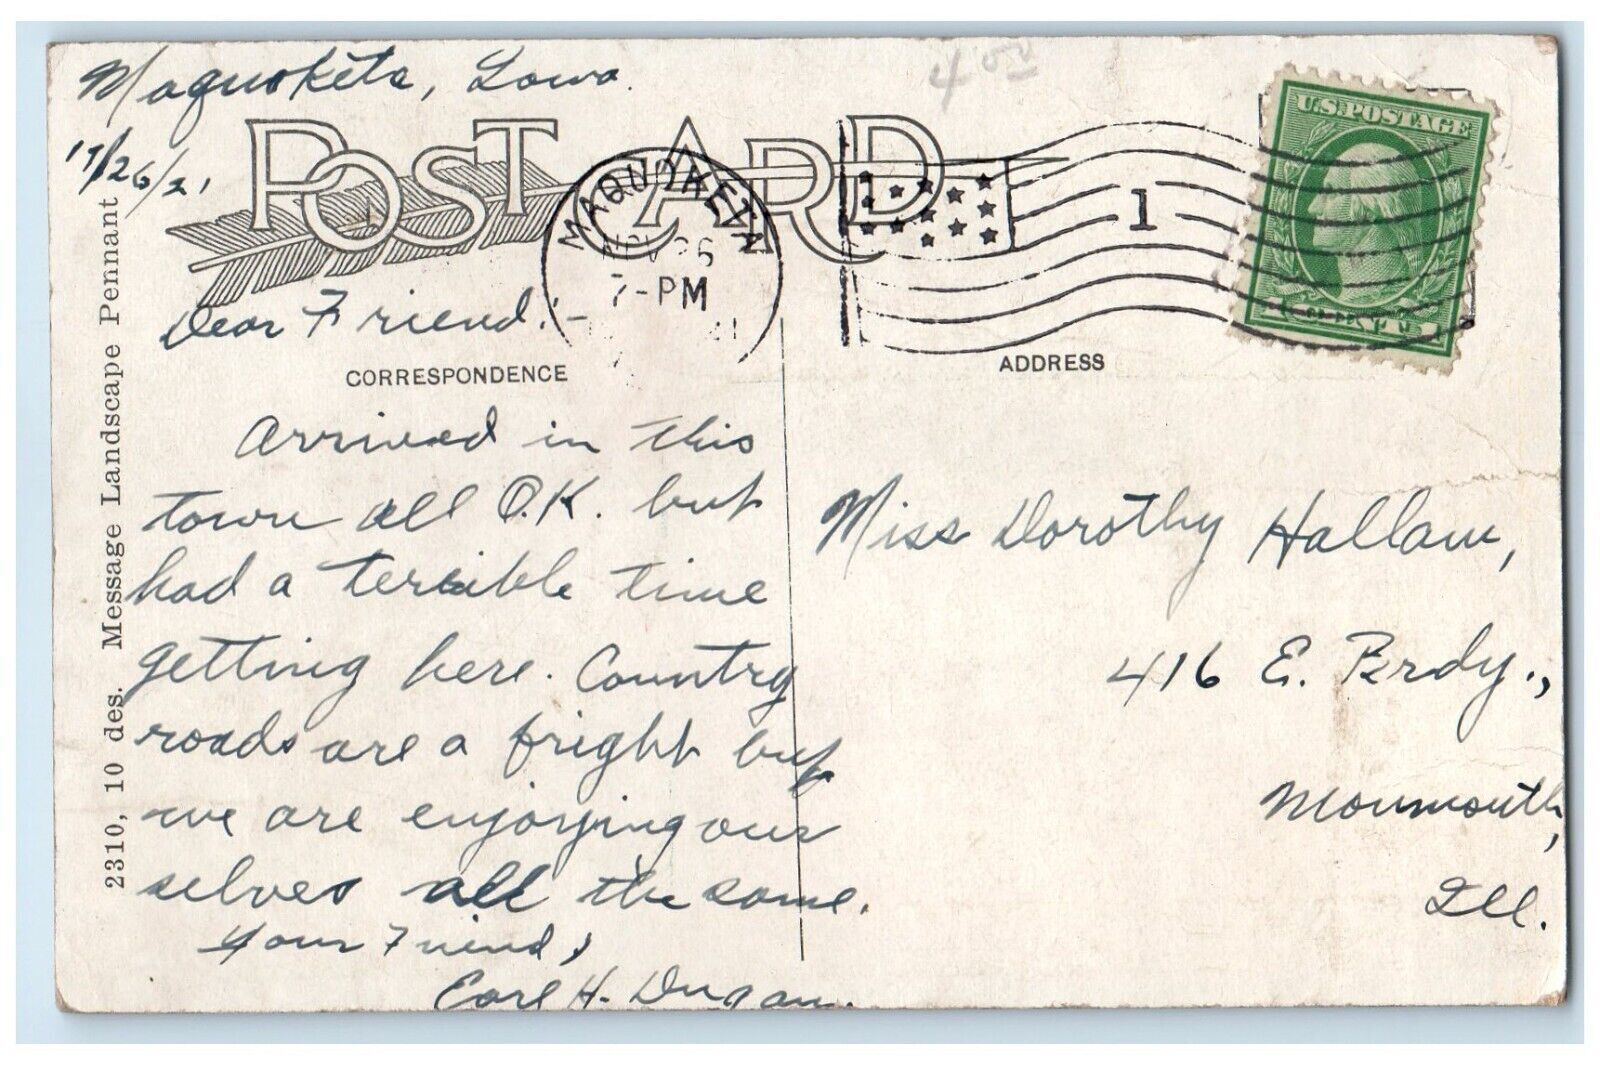 Maquoketa, Iowa.
11/26/21
4 00
POST CARD
MAQUOKETA
NOV 26
7-PM
1
U.S. POSTAGE
1 CENT 1
Dear Friend:-
CORRESPONDENCE
ADDRESS
Arrived in this
town all O.K. but
had a terrible time
getting here. Country
roads are a fright but
we are enjoying our
selves all the same.
Your Friend,
Earl H. Dugan.
Miss Dorothy Hallam,
416 E. Brdy.,
Monmouth,
Ill.
2310, 10 des. Message Landscape Pennant